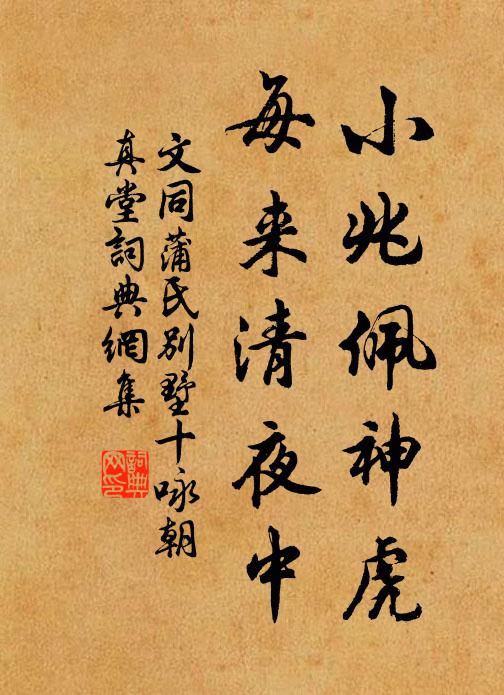 小兆佩神虎
每来清夜中
文同蒲氏别墅十咏朝
真堂詞典網集
詞典网印